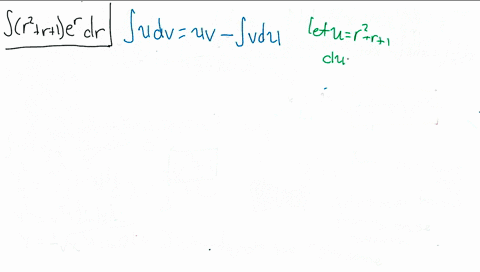 ∫(r²+r+1)eʳ dr ∫u dv = uv − ∫v du let u = r²+r+1
du